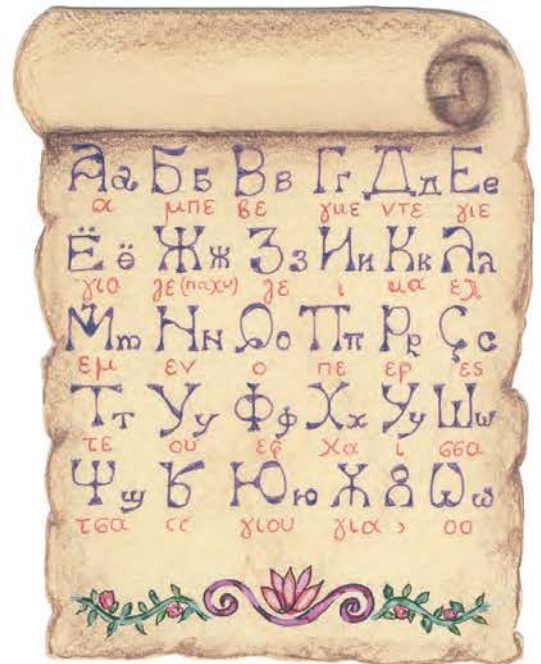 Аа Бб Вв Гг Дд Ее
α μπε βε γκε ντε γιε
Ёё Жж Зз Ии Кк Лл
γιο ζε(παχυ) ζε ι κα ελ
Мм Нн Оо Пп Рр Сс
εμ εν ο πε ερ ες
Тт Уу Фф Хх Уу Шш
τε ου εφ χα ι σσα
Ѱѱ Юю Ж 8 Ѡѡ
τσα γιου για οο